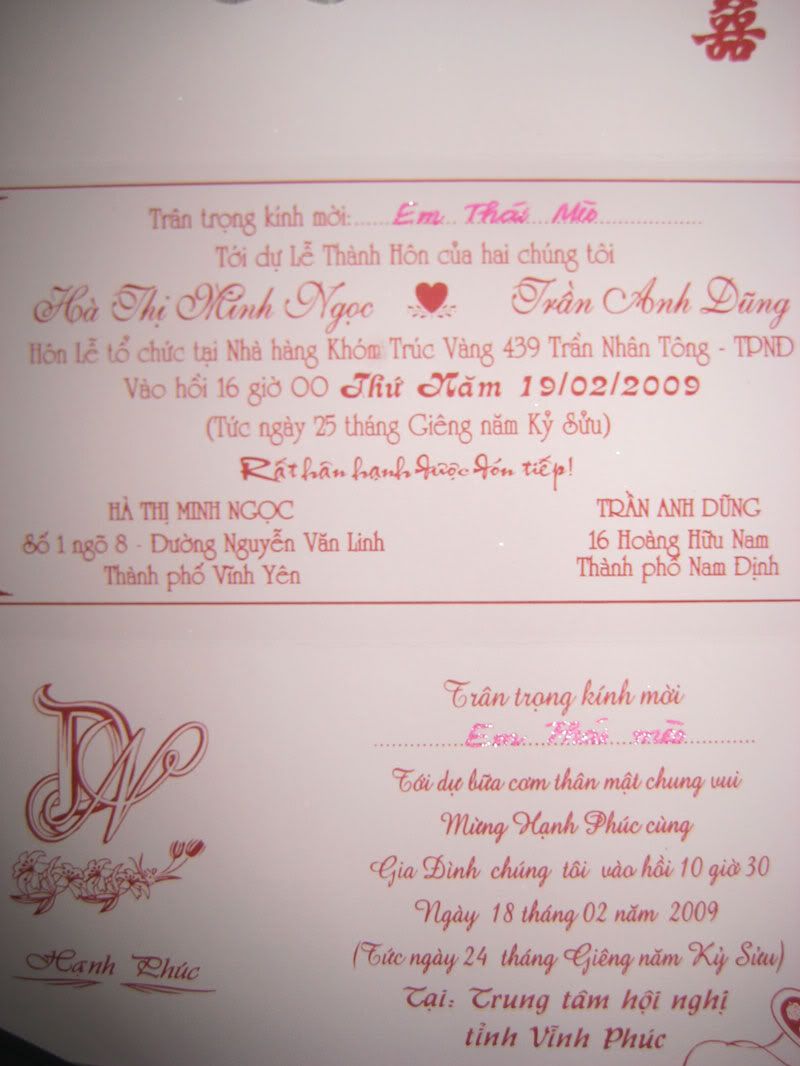 囍
Trân trọng kính mời:......Em Thái Mèo..................
Tới dự Lễ Thành Hôn của hai chúng tôi
Hà Thị Minh Ngọc Trần Anh Dũng
Hôn Lễ tổ chức tại Nhà hàng Khóm Trúc Vàng 439 Trần Nhân Tông - TPNĐ
Vào hồi 16 giờ 00 Thứ Năm 19/02/2009
(Tức ngày 25 tháng Giêng năm Kỷ Sửu)
Rất hân hạnh được đón tiếp!
HÀ THỊ MINH NGỌC
Số 1 ngõ 8 - Đường Nguyễn Văn Linh
Thành phố Vĩnh Yên
TRẦN ANH DŨNG
16 Hoàng Hữu Nam
Thành phố Nam Định
DN
Hạnh Phúc
Trân trọng kính mời
Em Thái mèo
Tới dự bữa cơm thân mật chung vui
Mừng Hạnh Phúc cùng
Gia Đình chúng tôi vào hồi 10 giờ 30
Ngày 18 tháng 02 năm 2009
(Tức ngày 24 tháng Giêng năm Kỷ Sửu)
Tại: Trung tâm hội nghị
tỉnh Vĩnh Phúc